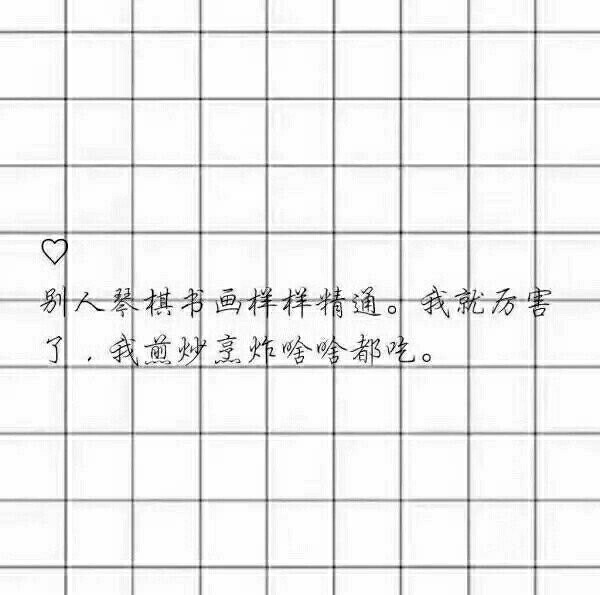 ♡
别人琴棋书画样样精通。我就厉害
了，我煎炒烹炸啥啥都吃。